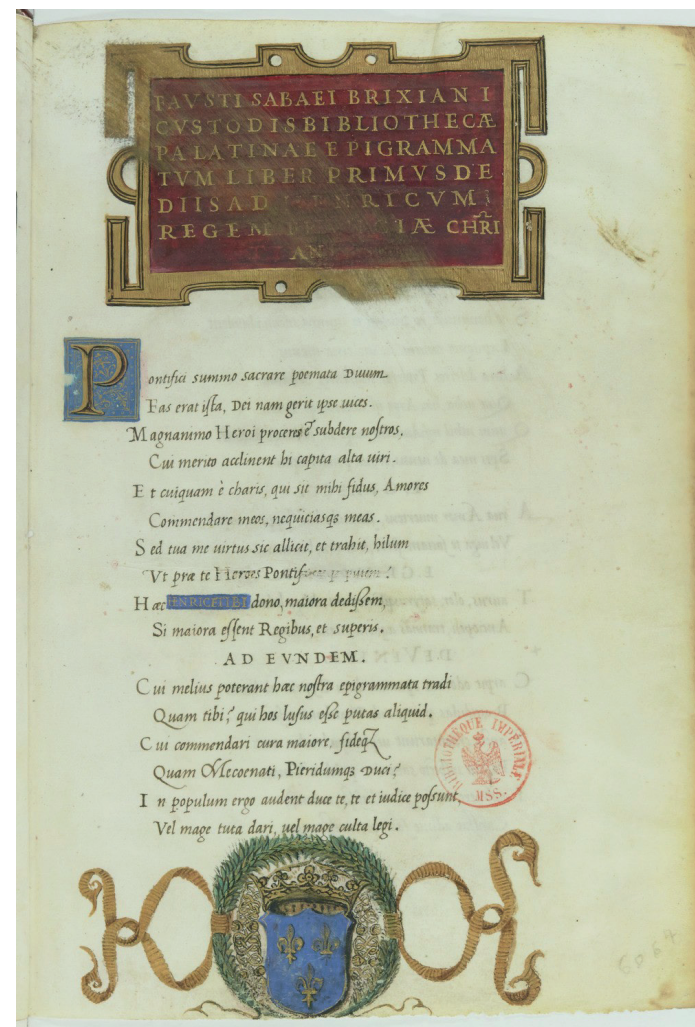 FAVSTI SABAEI BRIXIANI
CVSTODIS BIBLIOTHECÆ
PALATINAE EPIGRAMMA
TVM LIBER PRIMVS DE
DIIS AD HENRICVM
REGEM CHRI
AN
Pontifici summo sacrare poemata Diuum
Fas erat ista, Dei nam gerit ipse uices.
Magnanimo Heroi proceres & subdere nostros,
Cui merito acclinent hi capita alta uiri.
Et cuiquam è charis, qui sit mihi fidus, Amores
Commendare meos, nequiciasq3 meas.
Sed tua me uirtus sic allicit, et trahit, hilum
Vt præ te Heroes
Hæc HENRICE TIBI dono, maiora dedissem,
Si maiora essent Regibus, et superis.
AD EVNDEM.
Cui melius poterant hæc nostra epigrammata tradi
Quam tibi? qui hos lusus esse putas aliquid.
Cui commendari cura maiore, fideq3
Quam Mecoenati, Pieridumq3 Duci?
In populum ergo audent duce te, te et iudice possunt,
Vel mage tuta dari, uel mage culta legi.
BIBLIOTHÈQUE IMPÉRIALE
MSS.